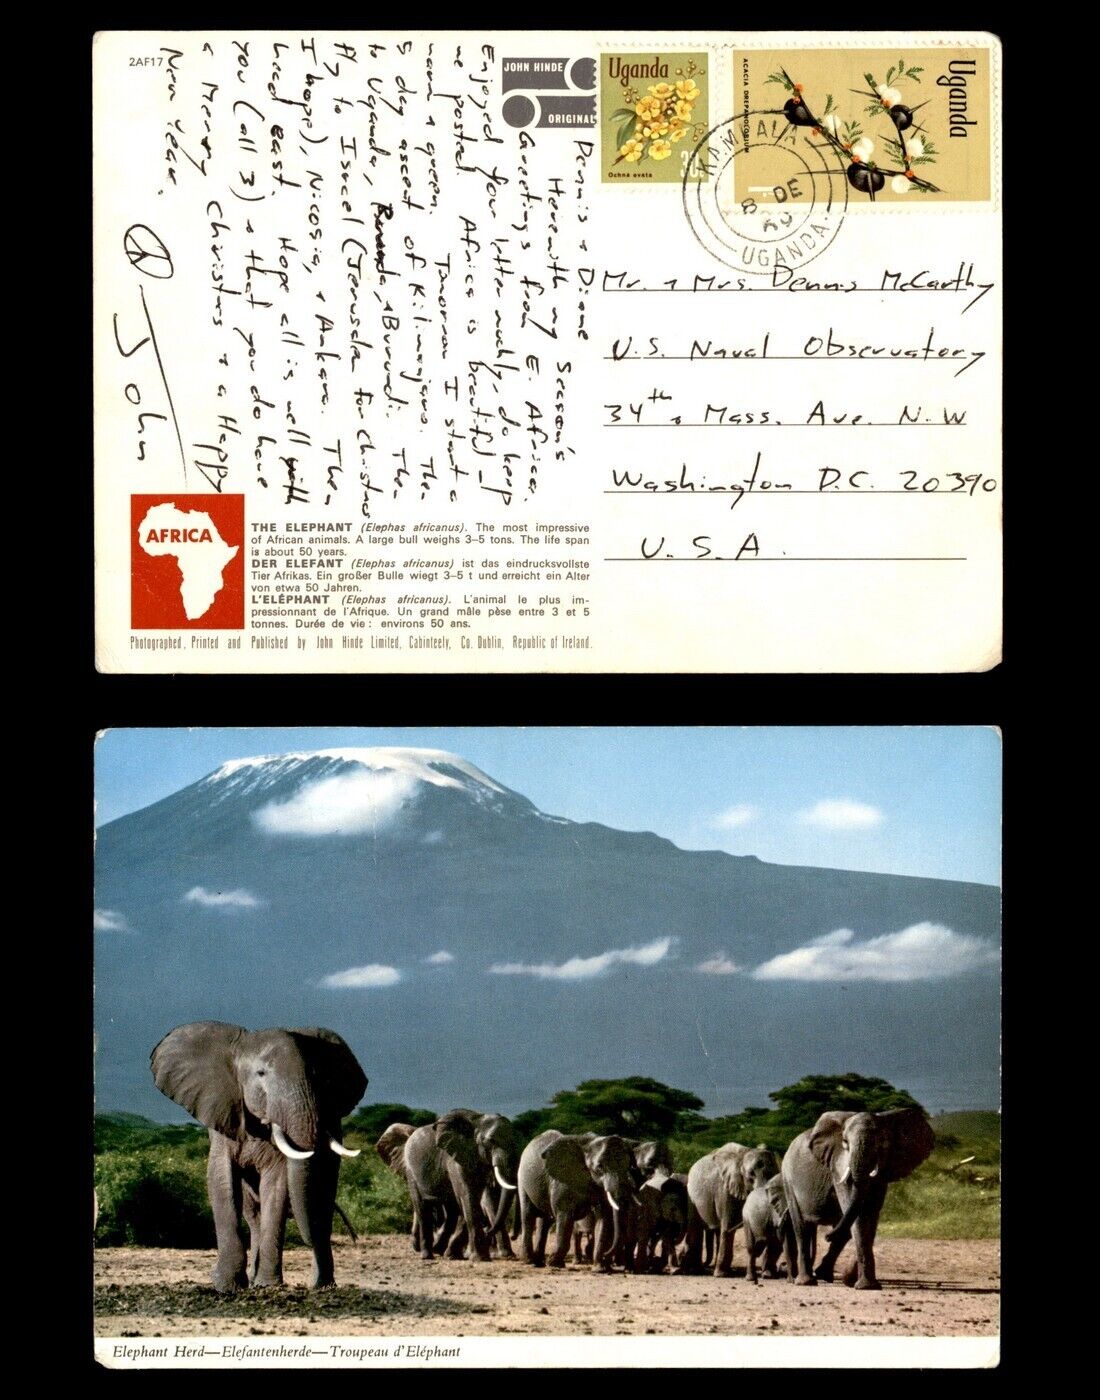 2AF17
JOHN HINDE
ORIGINAL
Uganda
30
Ochna ovata
Uganda
ACACIA DREPANOLOBIUM
1/-
KAMPALA
8 DE
69
UGANDA
Dennis & Diane
Herewith my Season's
Greetings from E. Africa.
Enjoyed your letter muchly, do keep
me posted. Africa is beautiful —
Tomorrow I start a
5 day ascent of Kilimanjaro. Then
to Uganda, & Burundi. Then
fly to Israel (Jerusalem for Christmas
I hope), Nicosia, & Ankara. Then
head east. Hope all is well with
you (all 3) & that you do have
a Merry Christmas & a Happy
New Year.
John
Mr. & Mrs. Dennis McCarthy
U.S. Naval Observatory
34th & Mass. Ave. N.W
Washington D.C. 20390
U.S.A.
AFRICA
THE ELEPHANT (Elephas africanus). The most impressive
of African animals. A large bull weighs 3–5 tons. The life span
is about 50 years.
DER ELEFANT (Elephas africanus) ist das eindrucksvollste
Tier Afrikas. Ein großer Bulle wiegt 3–5 t und erreicht ein Alter
von etwa 50 Jahren.
L'ELÉPHANT (Elephas africanus). L'animal le plus im-
pressionnant de l'Afrique. Un grand mâle pèse entre 3 et 5
tonnes. Durée de vie : environs 50 ans.
Photographed, Printed and Published by John Hinde Limited, Cabinteely, Co. Dublin, Republic of Ireland.
Elephant Herd—Elefantenherde—Troupeau d'Eléphant